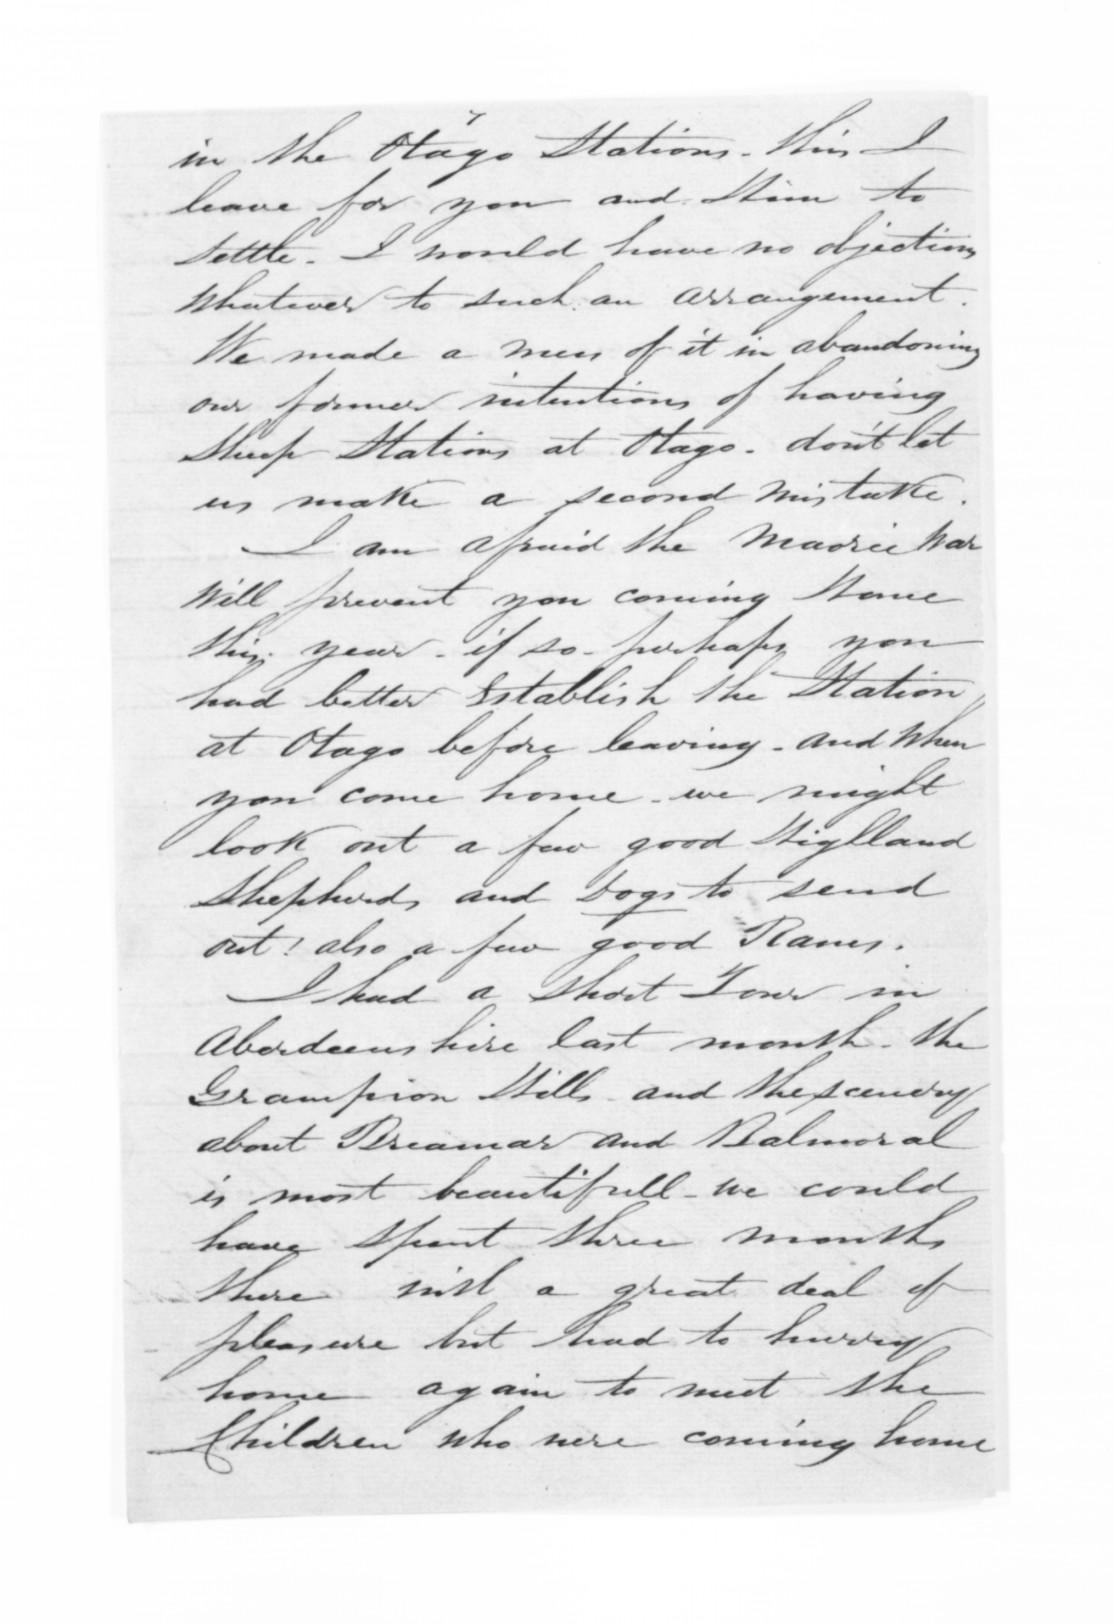 7
in the Otago Stations. this I
leave for you and Him to
Settle. I would have no objections
Whatever to such an arrangement.
We made a mess of it in abandoning
our former intentions of having
Sheep Stations at Otago. don't let
us make a second mistake.
I am afraid the Maorie War
Will prevent you coming Home
this year. if so. perhaps you
had better Establish the Station
at Otago before leaving. and When
you come home. we might
look out a few good Highland
Shepherds and Dogs to send
out! also a few good Rams.
I had a Short Tour in
Aberdeenshire last month. the
Grampion Hills and the scenery
about Breamar and Balmoral
is most beautifull. we could
have Spent three months
there with a great deal of
pleasure but had to hurry
home again to meet the
Children who were coming home